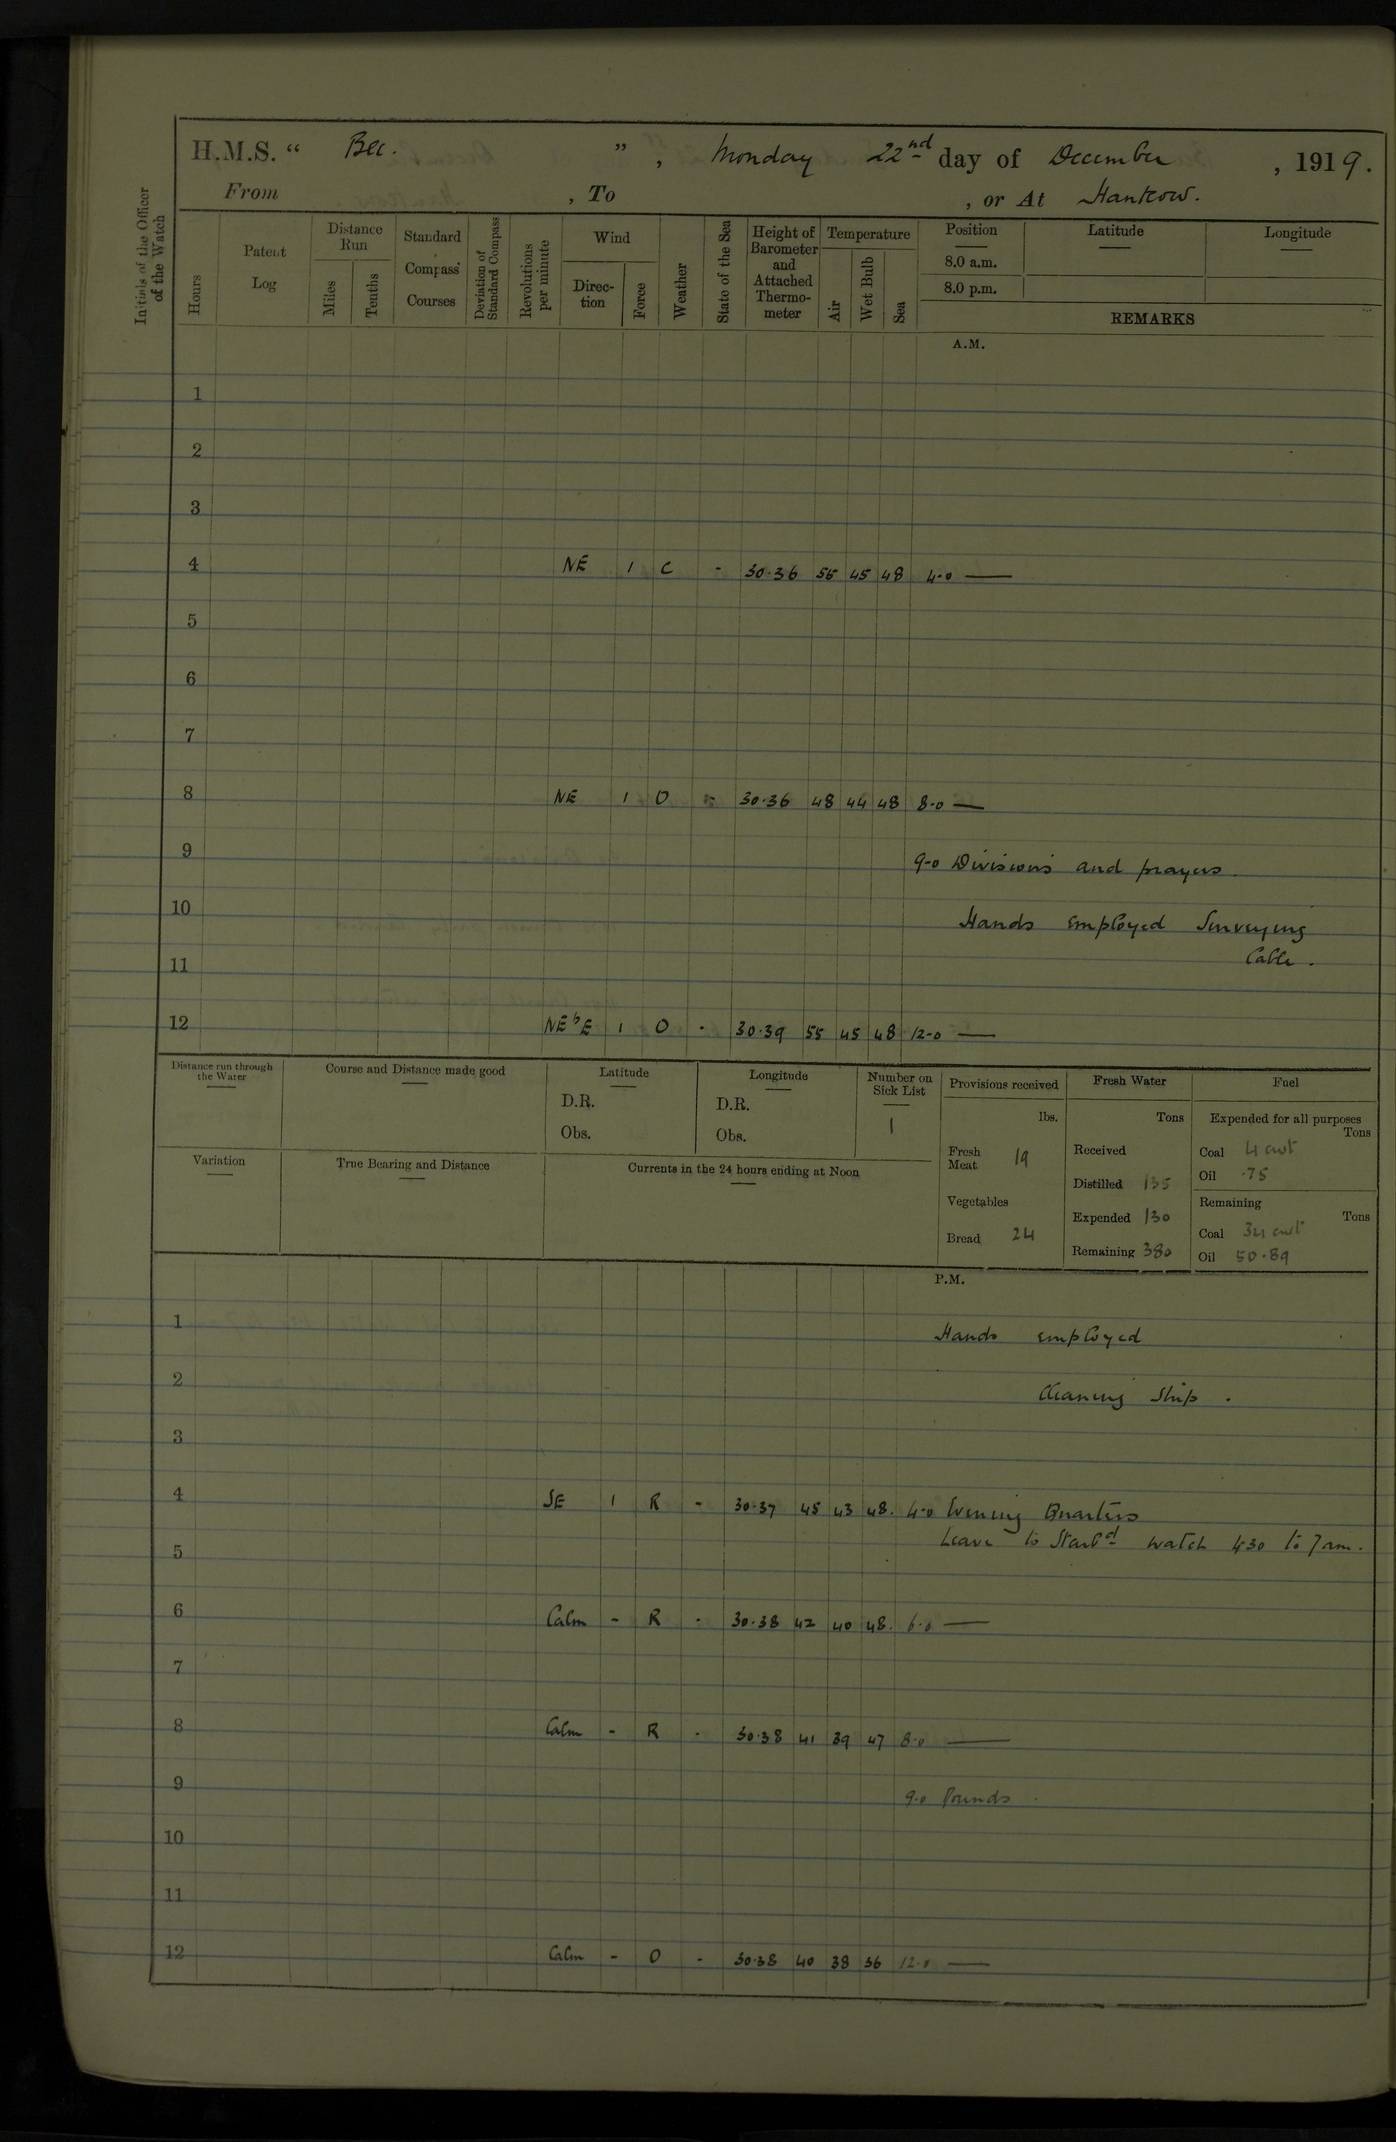 H.M.S. " Bee. ", Monday 22nd day of December, 1919.
From , To , or At Hankow.
Initials of the Officer of the Watch
Hours
Patent Log
Distance Run
Miles
Tenths
Standard Compass Courses
Deviation of Standard Compass
Revolutions per minute
Wind
Direction
Force
Weather
State of the Sea
Height of Barometer and Attached Thermometer
Temperature
Air
Wet Bulb
Sea
Position
8.0 a.m.
8.0 p.m.
Latitude
Longitude
REMARKS
A.M.
1
2
3
4 NE 1 C - 30.36 55 45 48 4-0 —
5
6
7
8 NE 1 O - 30.36 48 44 48 8-0 —
9 9-0 Divisions and prayers.
10 Hands employed Surveying
11 Cable.
12 NEbE 1 O - 30.39 55 45 48 12-0 —
Distance run through the Water
Course and Distance made good
Latitude
D.R.
Obs.
Longitude
D.R.
Obs.
Number on Sick List
1
Provisions received
lbs.
Fresh Meat 19
Vegetables
Bread 24
Fresh Water
Tons
Received
Distilled 135
Expended 130
Remaining 380
Fuel
Expended for all purposes
Tons
Coal 4 cwt
Oil .75
Remaining
Tons
Coal 34 cwt
Oil 50.89
Variation
True Bearing and Distance
Currents in the 24 hours ending at Noon
P.M.
1 Hands employed
2 Cleaning Ship.
3
4 SE 1 R - 30.37 45 43 48. 4-0 Evening Quarters
Leave to Starbd watch 4.30 to 7am.
5
6 Calm - R - 30.38 42 40 48. 6.0 —
7
8 Calm - R - 30.38 41 39 47 8.0 —
9 9.0 Rounds.
10
11
12 Calm - O - 30.38 40 38 36 12.0 —